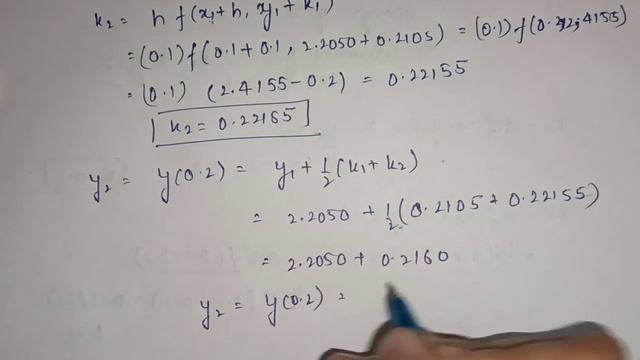 k₂ = h f(x₁+h, y₁+k₁)
= (0.1) f(0.1+0.1, 2.2050+0.2105) = (0.1) f(0.2, 2.4155)
= (0.1) (2.4155-0.2) = 0.22155
k₂ = 0.22155
y₂ = y(0.2) = y₁ + ½(k₁+k₂)
= 2.2050 + ½(0.2105 + 0.22155)
= 2.2050 + 0.2160
y₂ = y(0.2) =